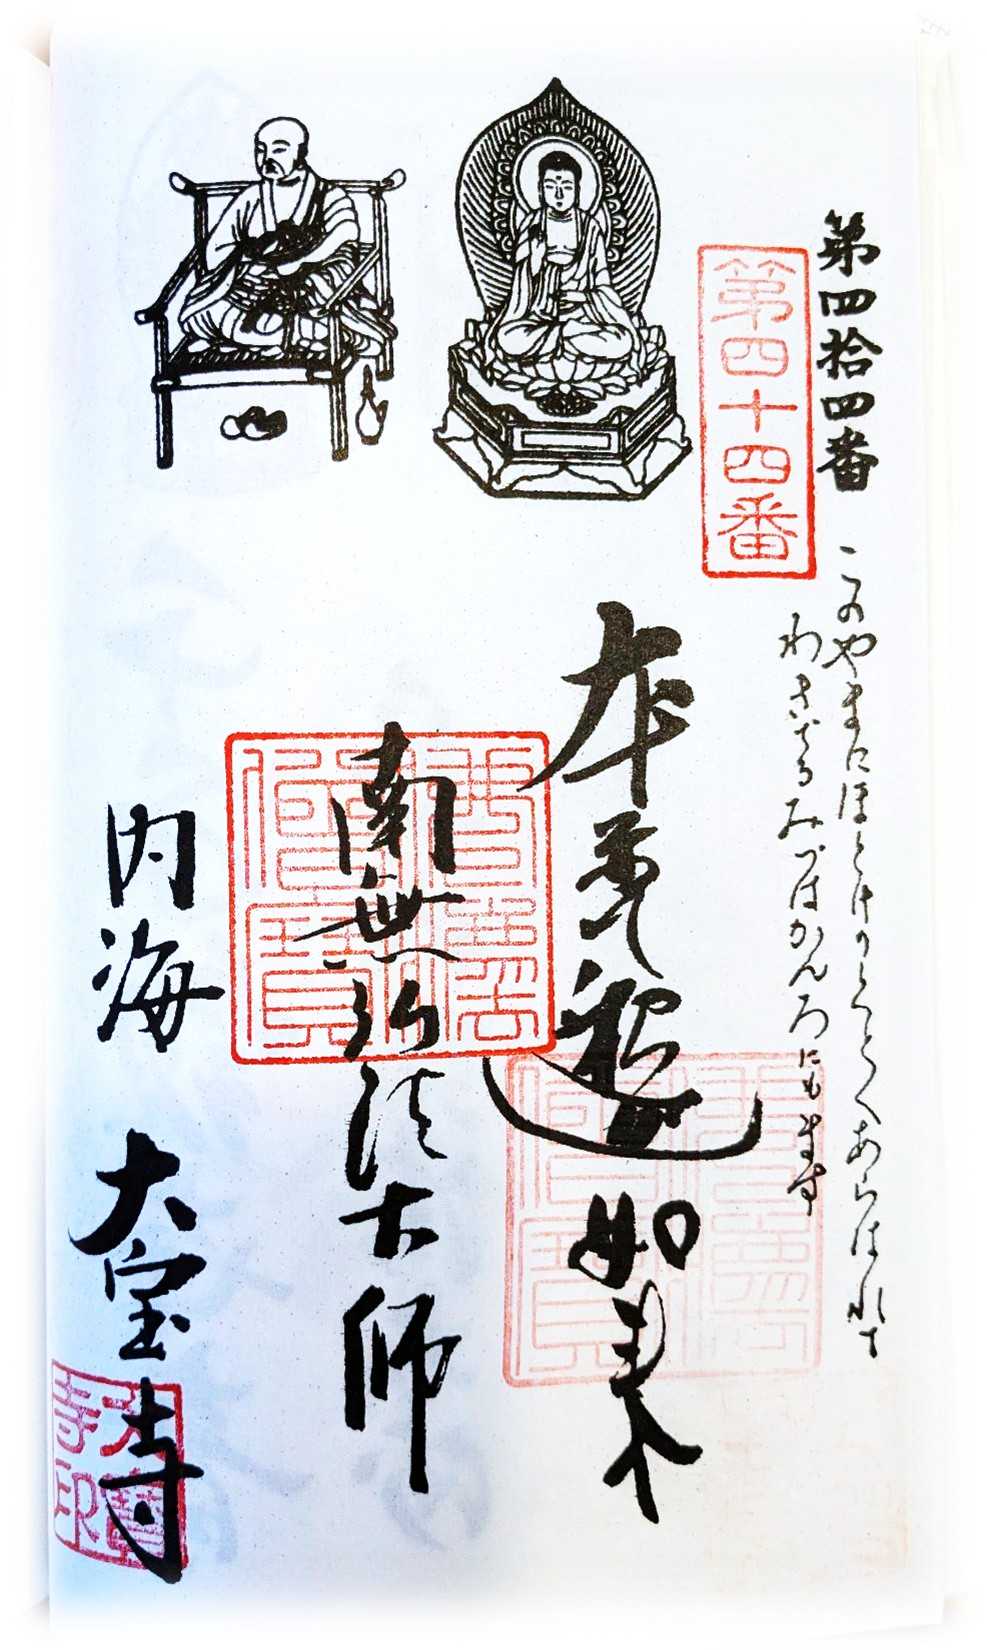 第四拾四番
第四十四番
このやまにほとけのくとくあらはれて
わきいづるみづはかんろにもます
本尊釈迦如来
南無弘法大師
内海 大宝寺
大寶寺印